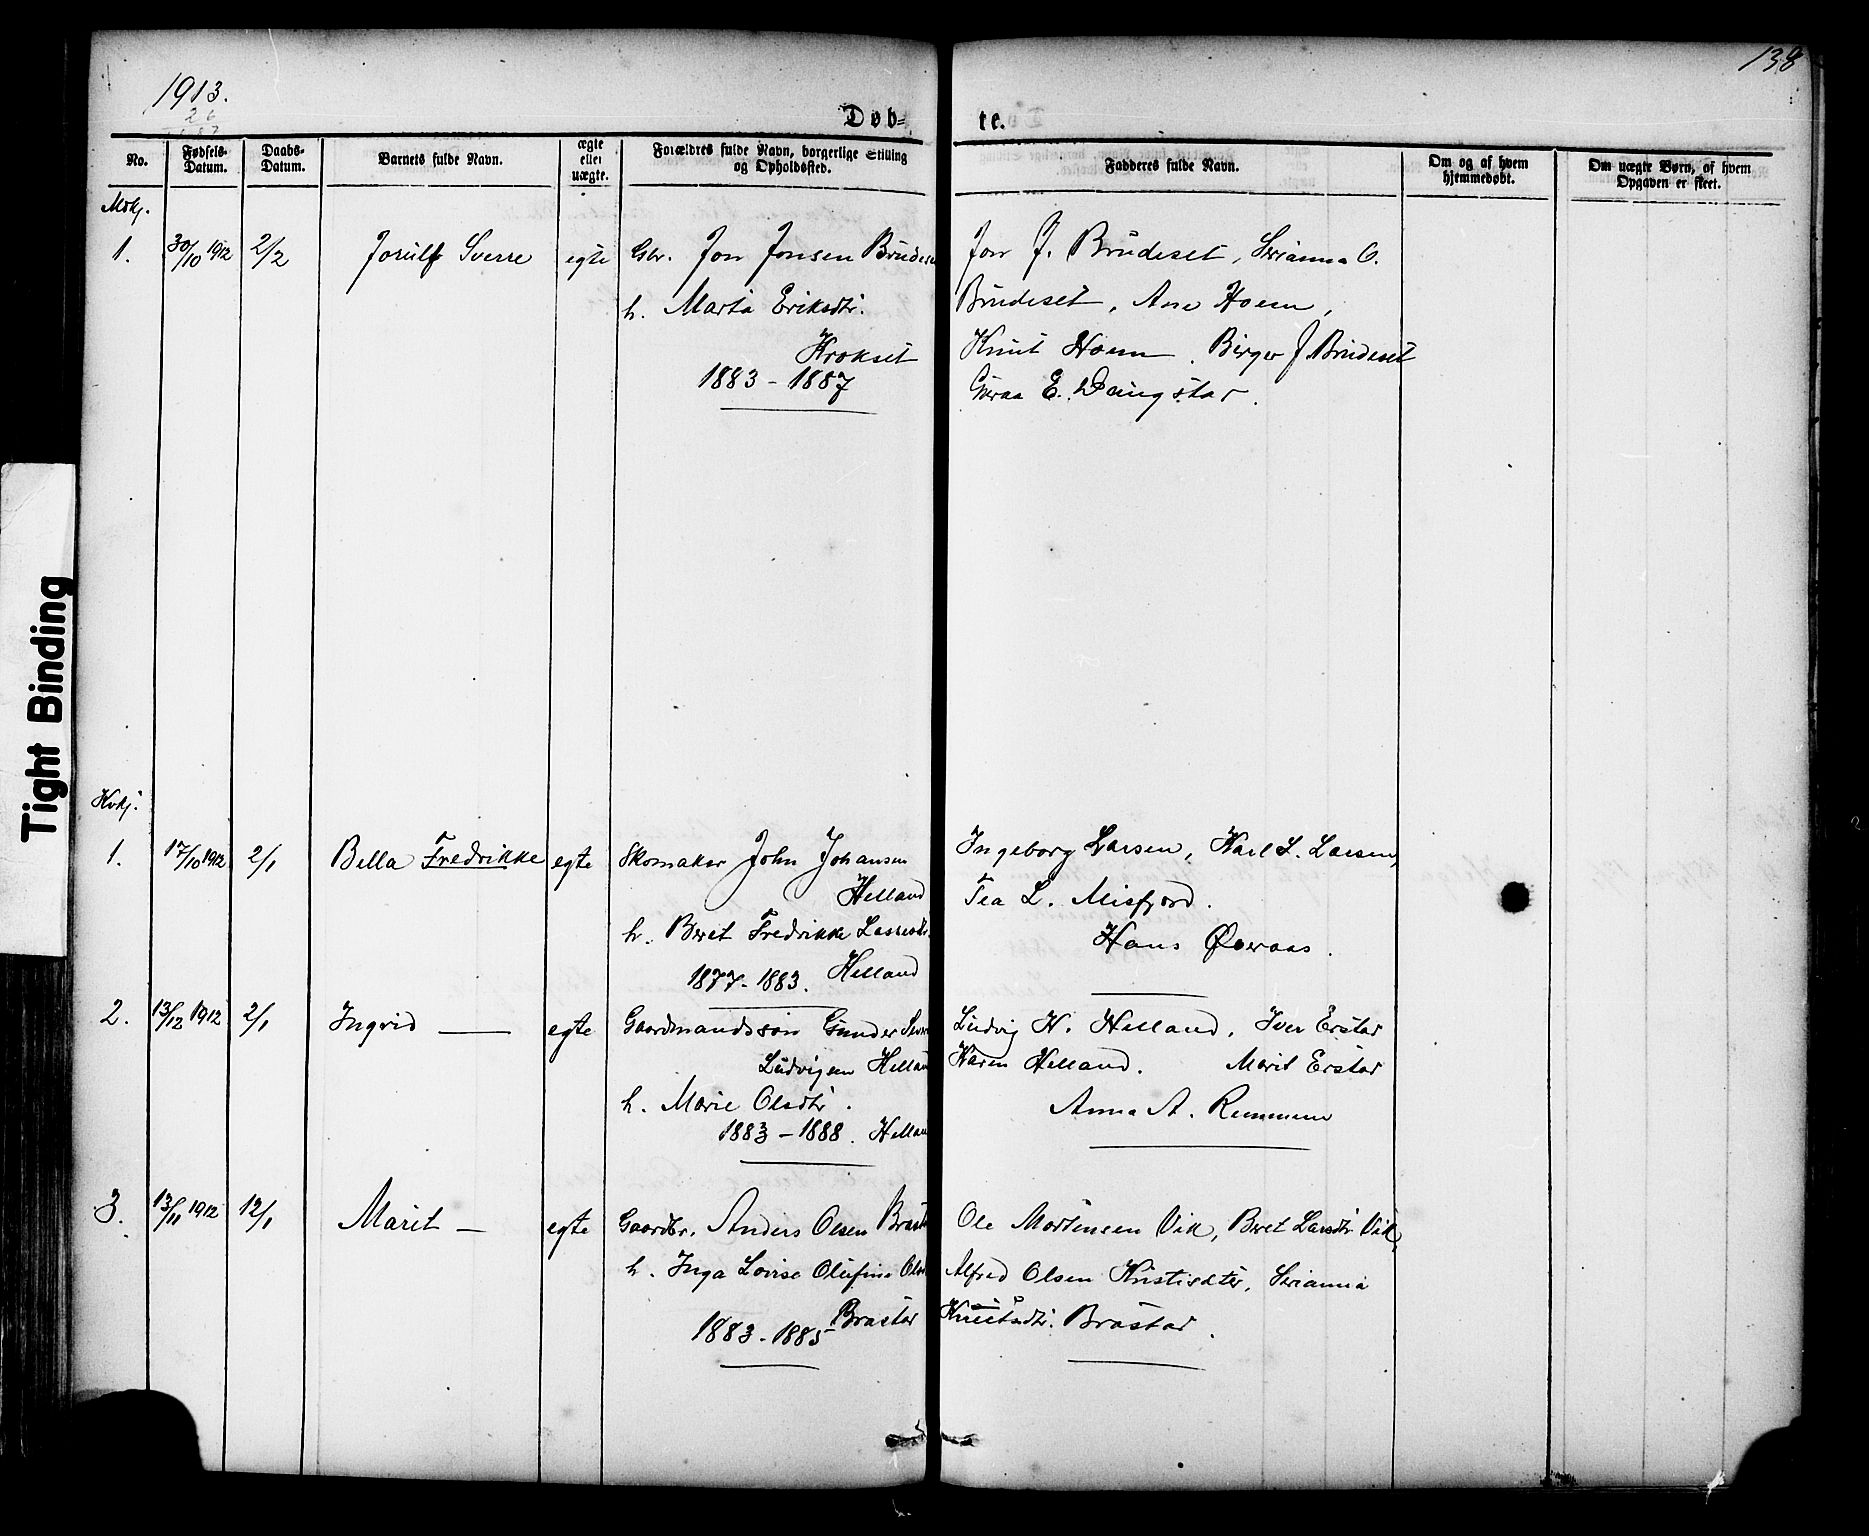 1913.
138
26
Døb=
te.
No.
Fødsels-
Datum.
Daabs-
Datum.
Barnets fulde Navn.
ægte
eller
uægte.
Forældres fulde Navn, borgerlige Stilling
og Opholdssted.
Fadderes fulde Navn.
Om og af hvem
hjemmedøbt.
Om uægte Børn, af hvem
Opgaven er skeet.
Mdkj.
1. 30/10 1912 2/2 Jorulf Sverre egte Gbr. Jon Jonsen Brudese
h. Marta Eriksdtr.
Krokset
1883 - 1887
Jon J. Brudeset, Serianna O.
Brudeset, Ane Hoem,
Knut Hoem, Birger J. Brudeset
Guraa E.
Kvkj.
1. 17/10 1912 2/1 Bella Fredrikke egte Skomaker John Johansen
Helland
h. Beret Fredrikke
Helland
1877 - 1883.
Ingeborg Larsen, Karl L. Larsen,
Tea L. Misfjord.
Hans Øveraas.
2. 13/12 1912 2/1 Ingrid — egte Gaardmandssøn Gunder
Ludvigsen Hellan
h. Marie Olsdtr.
1883 - 1888. Hellan
Ludvig H. Helland, Iver Erstar
Karen Helland. Marit Erstar
Anna A. Remmem
3. 13/11 1912 12/1 Marit — egte Gaardbr. Anders Olsen Brast
h. Inga Lovise Olufine Ols
Brastar
1883 - 1885
Ole Mortensen Vik, Beret Larsdtr Vik,
Alfred Olsen Serianna
Knutsdtr. Brastar.
Tight Binding